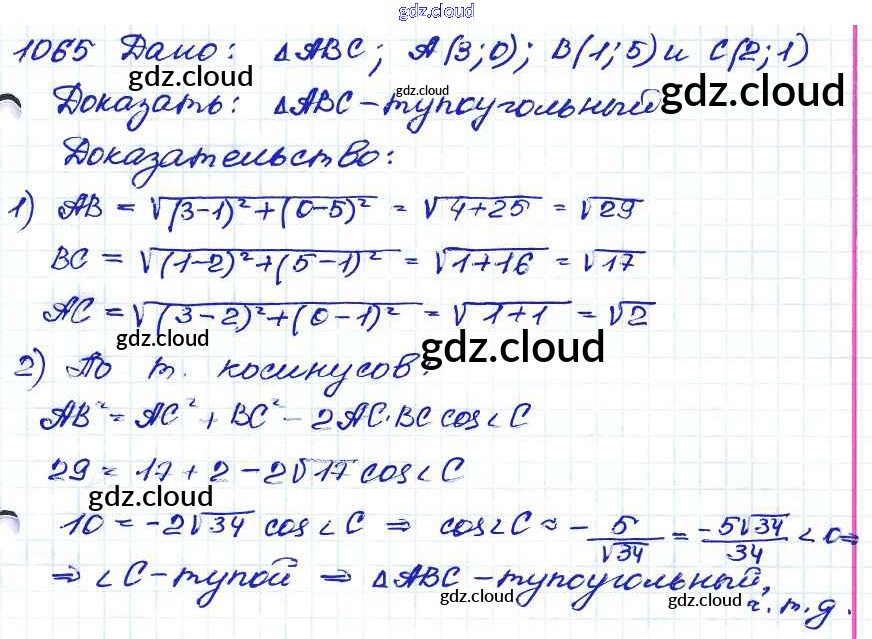 gdz.cloud
1065 Дано: △ABC; A(3;0); B(1;5) и C(2;1)
gdz.cloud gdz.cloud gdz.cloud
Доказать: △ABC – тупоугольный
Доказательство:
1) AB = √(3-1)²+(0-5)² = √4+25 = √29
BC = √(1-2)²+(5-1)² = √1+16 = √17
AC = √(3-2)²+(0-1)² = √1+1 = √2
gdz.cloud gdz.cloud
2) По т. косинусов:
AB² = AC² + BC² - 2AC·BC cos∠C
29 = 17 + 2 - 2√17 cos∠C
gdz.cloud
10 = -2√34 cos∠C ⇒ cos∠C = - 5/√34 = -5√34/34 < 0 ⇒
⇒ ∠C – тупой ⇒ △ABC – тупоугольный,
gdz.cloud gdz.cloud gdz.cloud
ч.т.д.